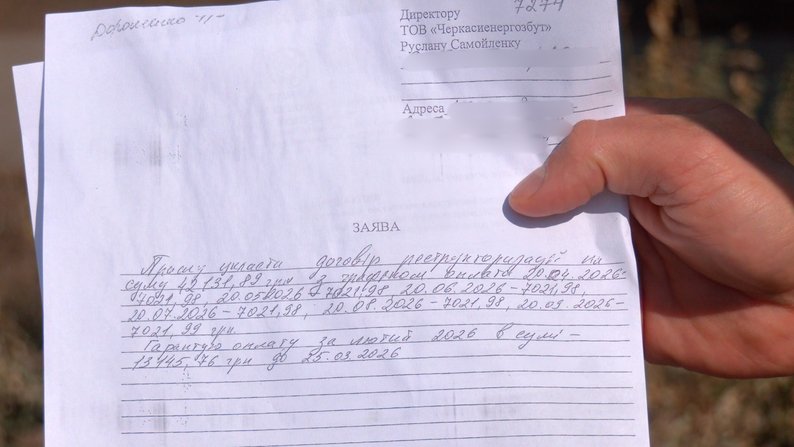 7274
Директору
ТОВ «Черкасиенергозбут»
Руслану Самойленку
Адреса
ЗАЯВА
Прошу укласти договір реструктуризації на
суму 42131,89 грн з графіком оплати 20.04.2026-
7021,98, 20.05.2026-7021,98 20.06.2026-7021,98,
20.07.2026-7021,98, 20.08.2026-7021,98, 20.09.2026-
7021,99 грн.
Гарантую оплату за лютий 2026 в сумі-
13145,76 грн до 25.03.2026